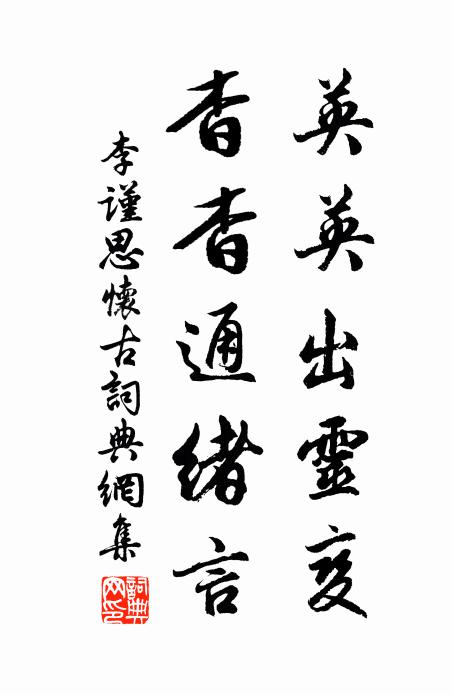 英英出靈變
杳杳通緒言
李謹思懷古詞典網集
詞典
网印